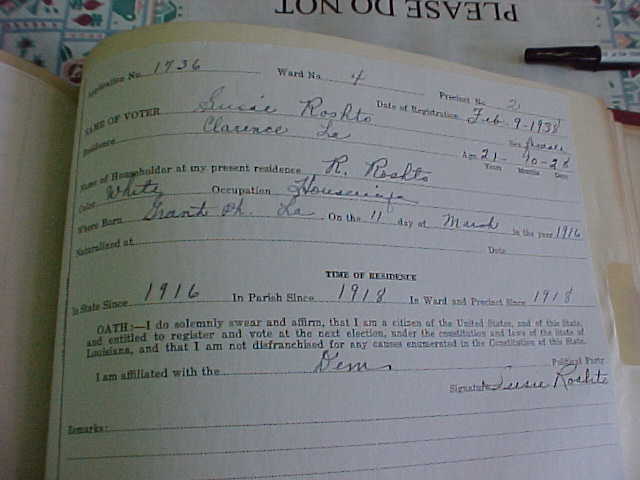 PLEASE DO NOT
Application No. 1736 Ward No. 4 Precinct No. 2
Date of Registration Feb. 9-1938
NAME OF VOTER Susie Roshto Sex female
Residence Clarence La Age 21- 10-28
Years Months Days
Name of Householder at my present residence R. Roshto
Color White Occupation Housewife
Where Born Grant Ph. La On the 11 day of March in the year 1916
Naturalized at Date
TIME OF RESIDENCE
In State Since 1916 In Parish Since 1918 In Ward and Precinct Since 1918
OATH:—I do solemnly swear and affirm, that I am a citizen of the United States, and of this State,
and entitled to register and vote at the next election, under the constitution and laws of the State of
Louisiana, and that I am not disfranchised for any causes enumerated in the Constitution of this State.
I am affiliated with the Dem Political Party
Signature Susie Roshto
Remarks: